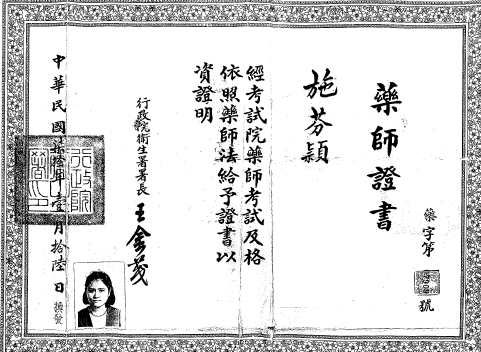 藥師證書
藥字第
號
施芬穎
經考試院藥師考試及格
依照藥師法給予證書以
資證明
行政院衛生署署長
王金茂
中華民國柒拾年壹月拾陸日